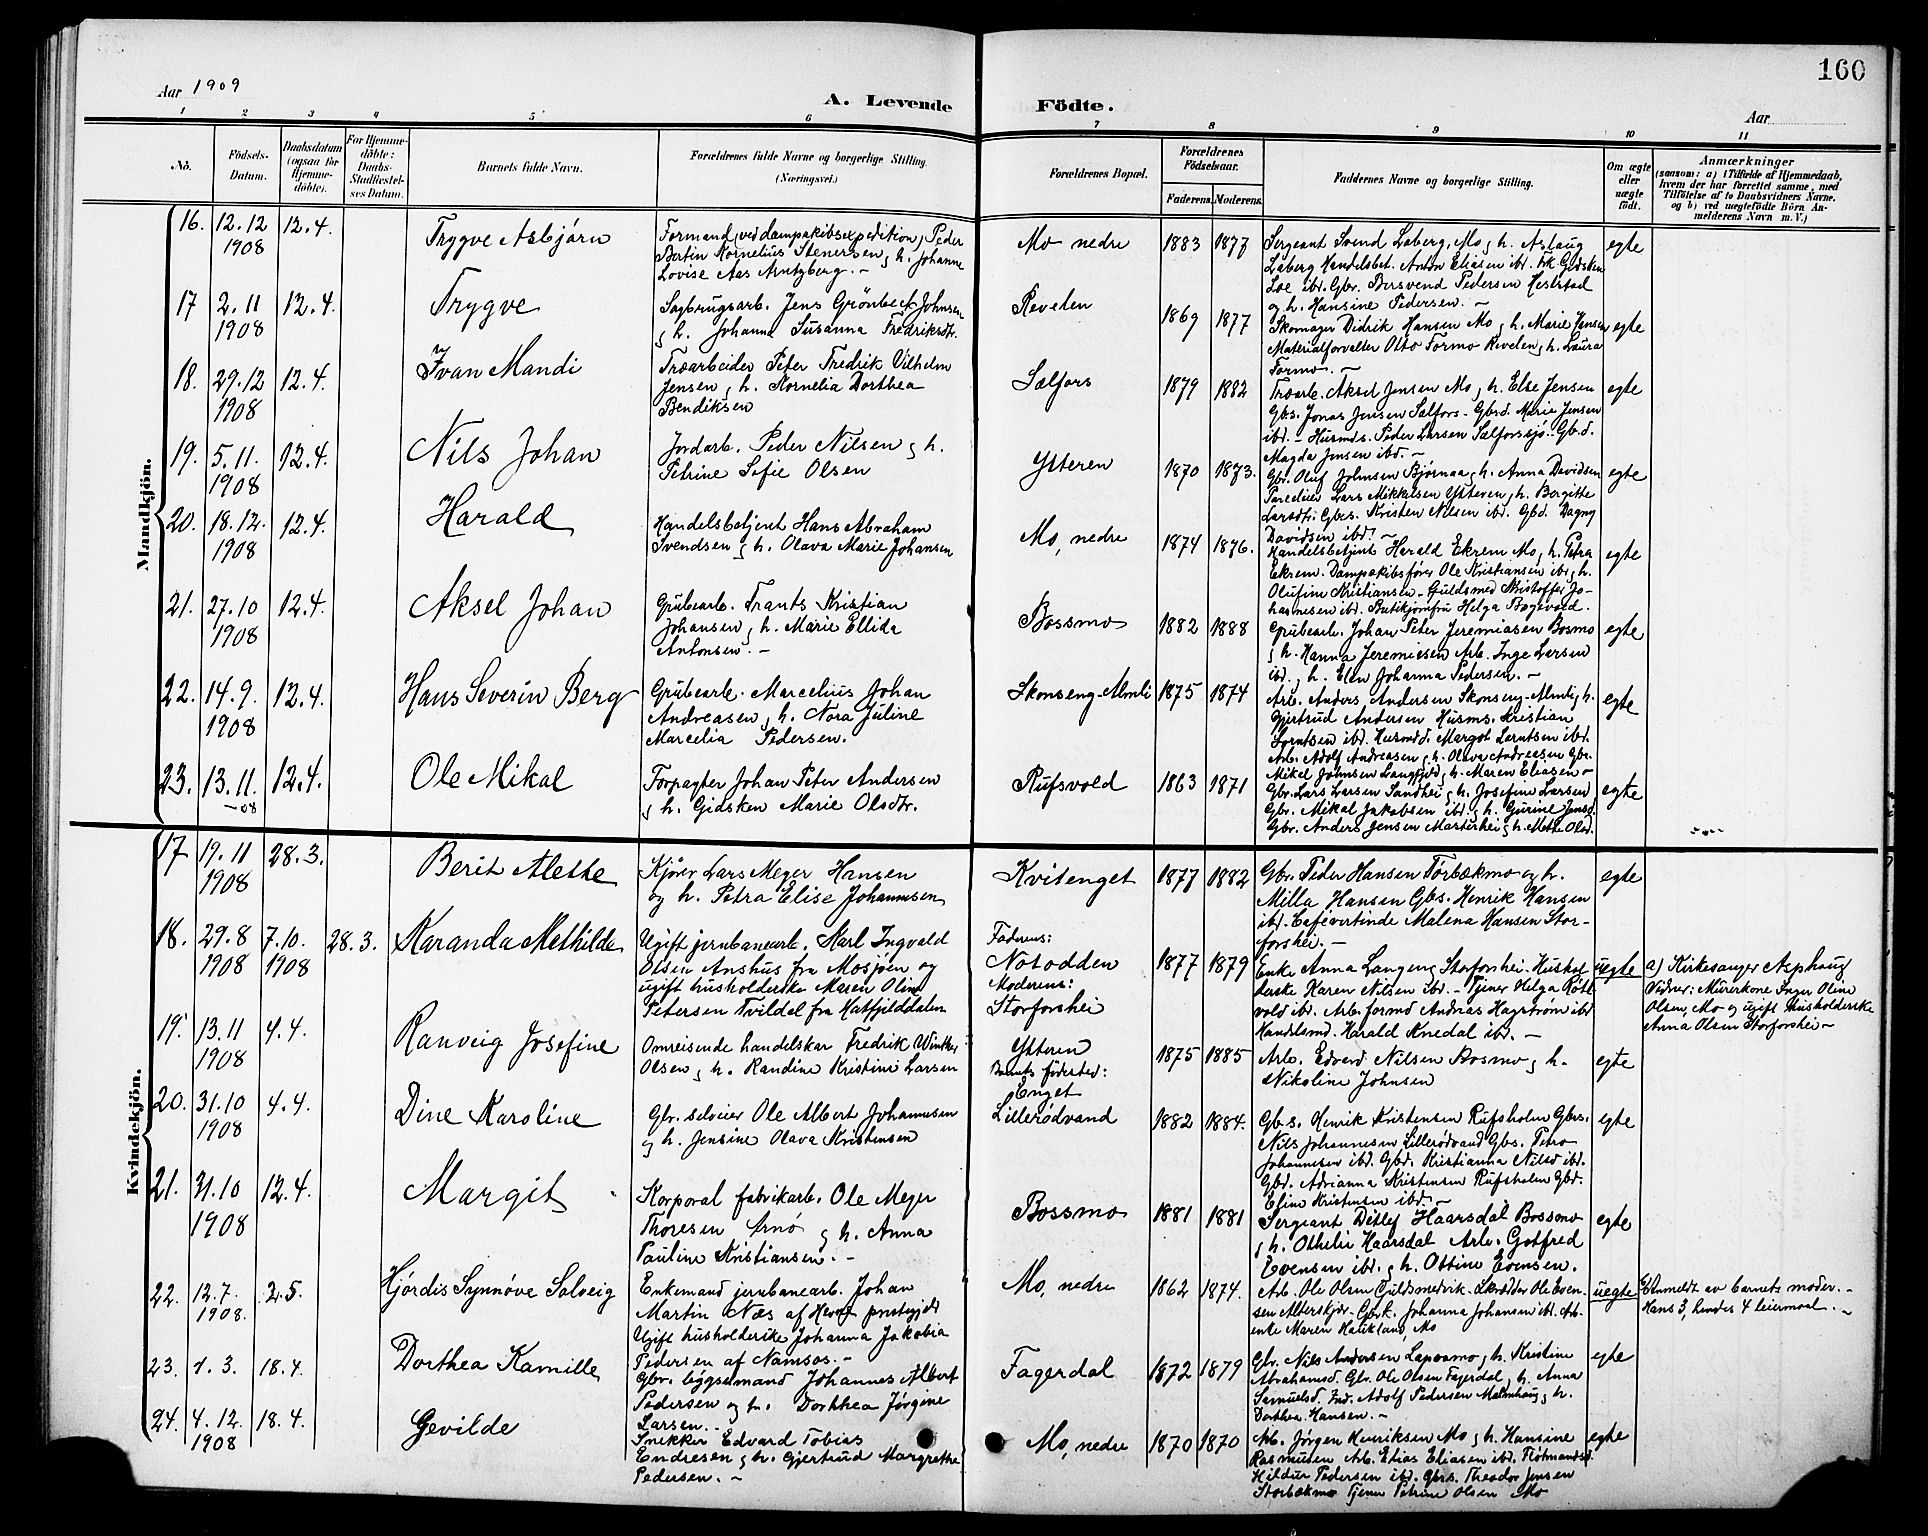 Aar 1909
A. Levende
Födte.
Aar
160
1 2 3 4 5 6 7 8 9 10 11
No.
Födsels-Datum.
Daabsdatum (ogsaa for Hjemme-döbte).
For Hjemme-döbte: Daabs-Stadfæstel-ses Datum.
Barnets fulde Navn.
Forældrenes fulde Navne og borgerlige Stilling. (Næringsvei.)
Forældrenes Bopæl.
Forældrenes Födselsaar.
Faderens. Moderens.
Faddernes Navne og borgerlige Stilling.
Om ægte eller uægte födt.
Anmærkninger (saasom: a) i Tilfælde af Hjemmedaab, hvem der har forrettet samme, med Tilföielse af to Daabsvidners Navne, og b) ved uægtefödte Börn An-melderens Navn m. V.)
Mandkjön.
16. 12.12 1908 12.4. Trygve Asbjørn
Formand (ved dampskibsexpedition) Peder
Bertin Kornelius Stenersen og h. Johanne
Lovise Aas Arntzberg. –
Mo nedre 1883 1877
Sergeant Svend Laberg, Mo og h. Aslaug
Laberg Handelsbet. Anton Eliasen ibd. Frk Gidsken
Loe ibd. Gbr. Bersvend Pedersen Hestad
og h. Hansine Pedersen. –
egte
17 2.11 1908 12.4. Trygve
Sagbrugsarb. Jens Grönbech Johnsen
og h. Johanna Susanna Fredriksdtr.
Revelen 1869 1877
Skomager Didrik Hansen Mo og h. Marie Hansen
Materialforvalter Otto Formo Revelen og h. Laura
Formo. –
egte
18. 29.12 1908 12.4. Ivan Mandi
Træarbeider Peter Fredrik Vilhelm
Jensen og h. Kornelia Dorthea
Bendiksen
Selfors 1879 1882
Træarb. Aksel Jensen Mo og h. Else Jensen
Gbs. Jonas Jensen Selfors – Gbrd. Marie Jensen
ibd. – Husmds. Peder Larsen Selforssjö. Gb.d.
Magda Jensen ibd. –
egte
19. 5.11. 1908 12.4. Nils Johan
Jordarb. Peder Nilsen og h.
Petrine Sofie Olsen
Ytteren 1870 1873.
Gbr. Oluf Johnsen Bjørnaa og h. Anna Davidsen
Parceleier Lars Mikkelsen Ytteren og h. Borgitte
Larsdtr. Gbrs. Kristen Nilsen ibd. Gbd. Dagny
Davidsen ibd. –
egte
20. 18.12. 1908 12.4. Harald
Handelsbetjent Hans Abraham
Svendsen og h. Olava Marie Johansen
Mo, nedre 1874 1876.
Handelsbetjent Harald Ekrem Mo og h. Petra
Ekrem. Dampskibsfører Ole Kristiansen ibd og h.
Olufine Kristiansen – Guldsmed Kristoffer Jo-
hannesen ibd. Butikjomfru Helga Bogevold.
egte
21. 27.10 1908 12.4. Aksel Johan
Grubearb. Frants Kristian
Johansen og h. Marie Ellida
Antonsen. –
Bossmo 1882 1888
Grubearb. Johan Peter Jeremiasen Bosmo
og h. Hanna Jeremiesen Arb. Inge Larsen
ibd. og h. Elen Johanna Pedersen. –
egte
22. 14.9. 1908 12.4. Hans Severin Berg
Grubearb. Marcelius Johan
Andreasen og h. Nora Juline
Marcelia Pedersen.
Skonseng-Almli 1875 1874
Arb. Anders Andersen Skonseng-Almli og h.
Gjertrud Andersen Husms. Kristian
Lorntsen ibd. Husmd.d. Margot Lerntsen ibd.
Arb. Adolf Andreasen og h. Olava Andreesen
egte
23. 13.11. –08 12.4. Ole Mikal
Forpagter Johan Peter Andersen
og h. Gidsken Marie Olsdtr.
Rufsvold 1863 1871
Gbr. Mikel Johnsen Langfjeld og h. Maren Eliasen –
Gbr. Lars Larsen Sandhei og h. Josefine Larsen
Gbr. Mikal Jakobsen ibd. og h. Gurine Jensd.
Gbr. Anders Jensen Marterhei og h. Mette Olsd.
egte
Kvindekjön.
17 19.11 1908 28.3. Berit Alette
Kjører Lars Meyer Hansen
og h. Petra Elise Johannesen
Kvitenget 1877 1882
Gbr. Peder Hansen Forbækmo og h.
Milla Hansen Gbs. Henrik Hansen
ibd. Cafévertinde Malena Hansen Stor-
forshei. –
egte
18. 29.8 1908 7.10. 1908 28.3. Karanda Mathilde
Ugift jernbanearb. Karl Ingvald
Olsen Anshus fra Mosjøen og
ugift husholderske Maren Oline
Petersen Tvildal fra Hatfjelddalen
Faderens:
Notodden
Moderens:
Storforshei
1877 1879
Enke Anna Langeng Storforshei. Hushol
derske Karen Nilsen ibd. – Tjener Helga Röt
vold ibd. Arb. formd Andreas Hagström ibd
Handelsmd. Harald Knedal ibd. –
uegte
a) Kirkesanger Asphaug
Vidner: Murerkone Inger Oline
Olsen, Mo og ugift husholderske
Anna Olsen Storforshei –
19. 13.11 1908 4.4. Ranveig Josefine
Omreisende handelskar Fredrik Winther
Olsen og h. Randine Kristine Larsen
Ytteren
Barnets fødested:
Enget
1875 1885
Arb. Edvard Nilsen Bosmo og h.
Nikoline Johnsen
egte
20. 31.10 1908 4.4. Dine Karoline
Gbr. selveier Ole Albert Johannesen
og h. Jensine Olava Kristensen
Lillerødvand 1882 1884.
Gbr s. Henrik Kristensen Rufsholm Gbrs.
Nils Johannesen Lillerødvand Gbs. Petro
Johannesen ibd. Gbd. Kristianna Nilsd ibd.
Gbd. Adrianna Kristensen Rufsholm Gbd.
Eline Kristensen ibd. –
egte
21. 31.10 1908 12.4. Margit
Korporal fabrikarb. Ole Meyer
Thoresen Arnö og h. Anna
Pauline Kristiansen. –
Bossmo 1881 1881
Sergeant Ditlef Haarsdal Bossmo
og h. Othelie Haarsdal Arb. Gotfred
Evensen ibd. og h. Ottine Evensen.
egte
22. 12.7. 1908. 2.5. Hjördis Synnöve Solveig
Enkemand jernbanearb. Johan
Martin Næs af Herøy prstegjeld
Ugift husholderske Johanna Jakobia
Pedersen af Namsos. –
Mo, nedre 1862 1874.
Arb. Ole Olsen Guldsmedvik. Skrædder Ole Even-
sen Alterskjær. Gbrk. Johanna Johansen ibd. Arb.
enke Maren Hauknes, Mo
uegte
b) Anmeldt av barnets moder. –
Hans 3, hendes 4 leiermaal. –
23. 1.3. 18.4. Dorthea Kamille
Gbr. bygselmand Johannes Albert
Pedersen og h. Dorthea Jørgine
Larsen. –
Fagerdal 1872 1879
Gbr. Nils Andersen Laposmo og h. Kristine
Abrahamsd. Gbr. Ole Olsen Fagerdal og h. Anna
Samuelsd. Ind. Adolf Pedersen Malmhaug og h.
Dorthea Hansen. –
egte
24. 4.12. 1908 18.4. Gevilde
Snekker Edvard Tobias
Endresen og h. Gjertrud Margrethe
Pedersen. –
Mo, nedre 1870 1870
Arb. Jørgen Henriksen Mo og h. Hansine
Rasmussen Arb. Elias Eliasen ibd. Flötmandsd.
Hildur Pedersen ibd. Gbrs. Theodor Jensen
Storbækmo Tjener Petrine Olsen Mo
egte